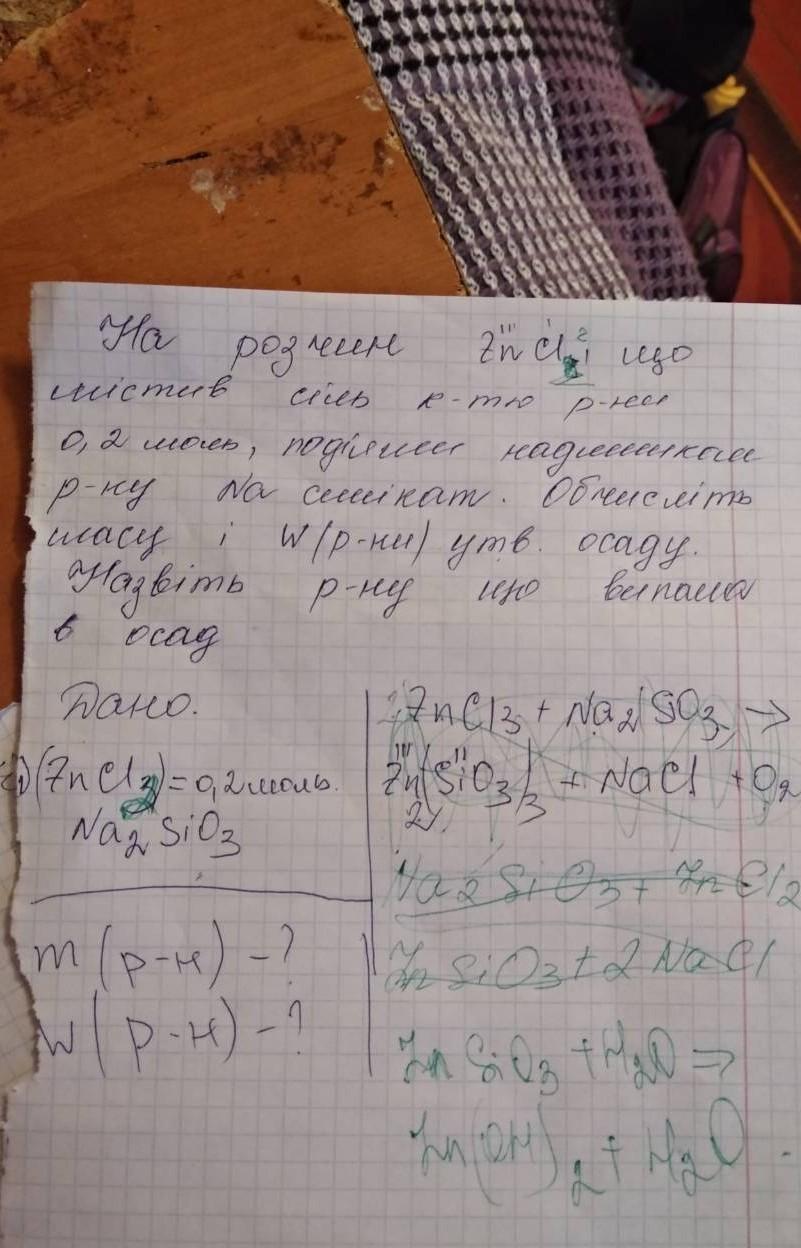 На розчин ZnCl2 що
містив сіль к-тю р-ни
0,2 моль, поділяли надлишком
р-ну Na силікат. Обчисліть
масу і W(р-ни) утв. осаду.
Назвіть р-ну що випала
в осад
Дано.
(ZnCl2)=0,2 моль.
Na2SiO3
m(р-н) -?
W(р-н) -?
ZnCl3 + Na2SiO3 →
Zn2(SiO3)3 + NaCl + O2
Na2SiO3 + ZnCl2
ZnSiO3 + 2NaCl
ZnSiO3 + H2O ⇒
Zn(OH)2 + H2O